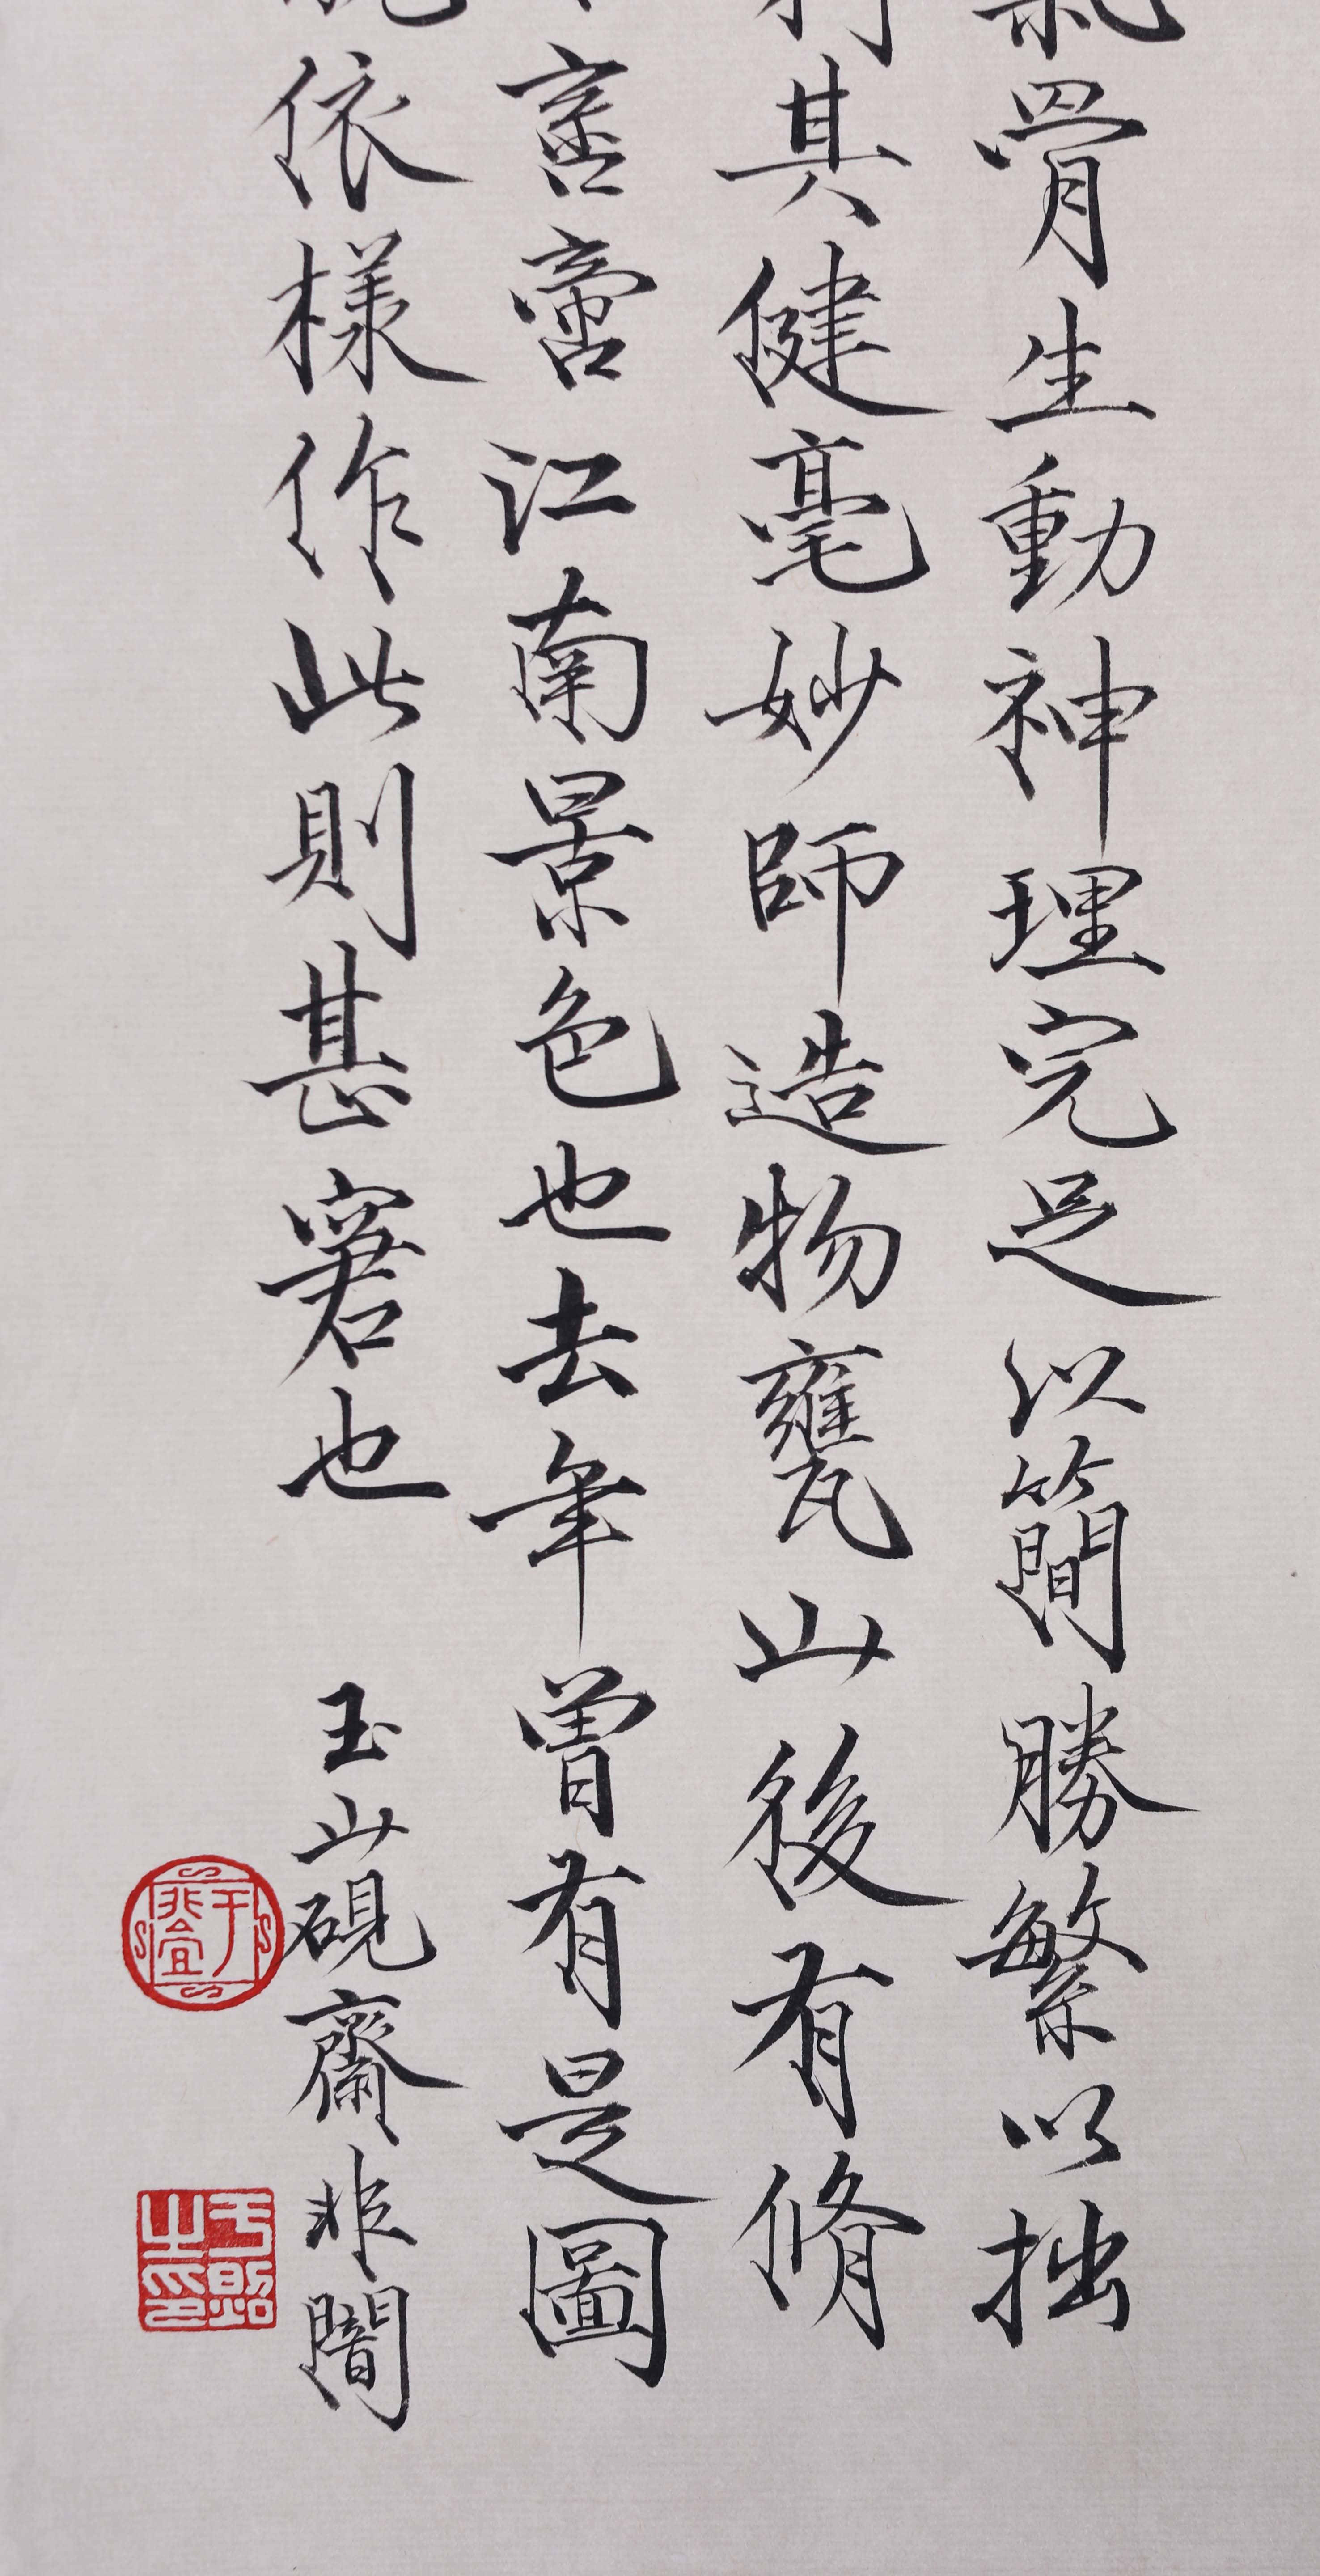 氣骨生動神理完足以簡勝繁以拙
其健毫妙師造物甕山後有脩
啻江南景色也去年曾有是圖
依樣作此則甚窘也 玉山硯齋非闇
于非盦
于照之印